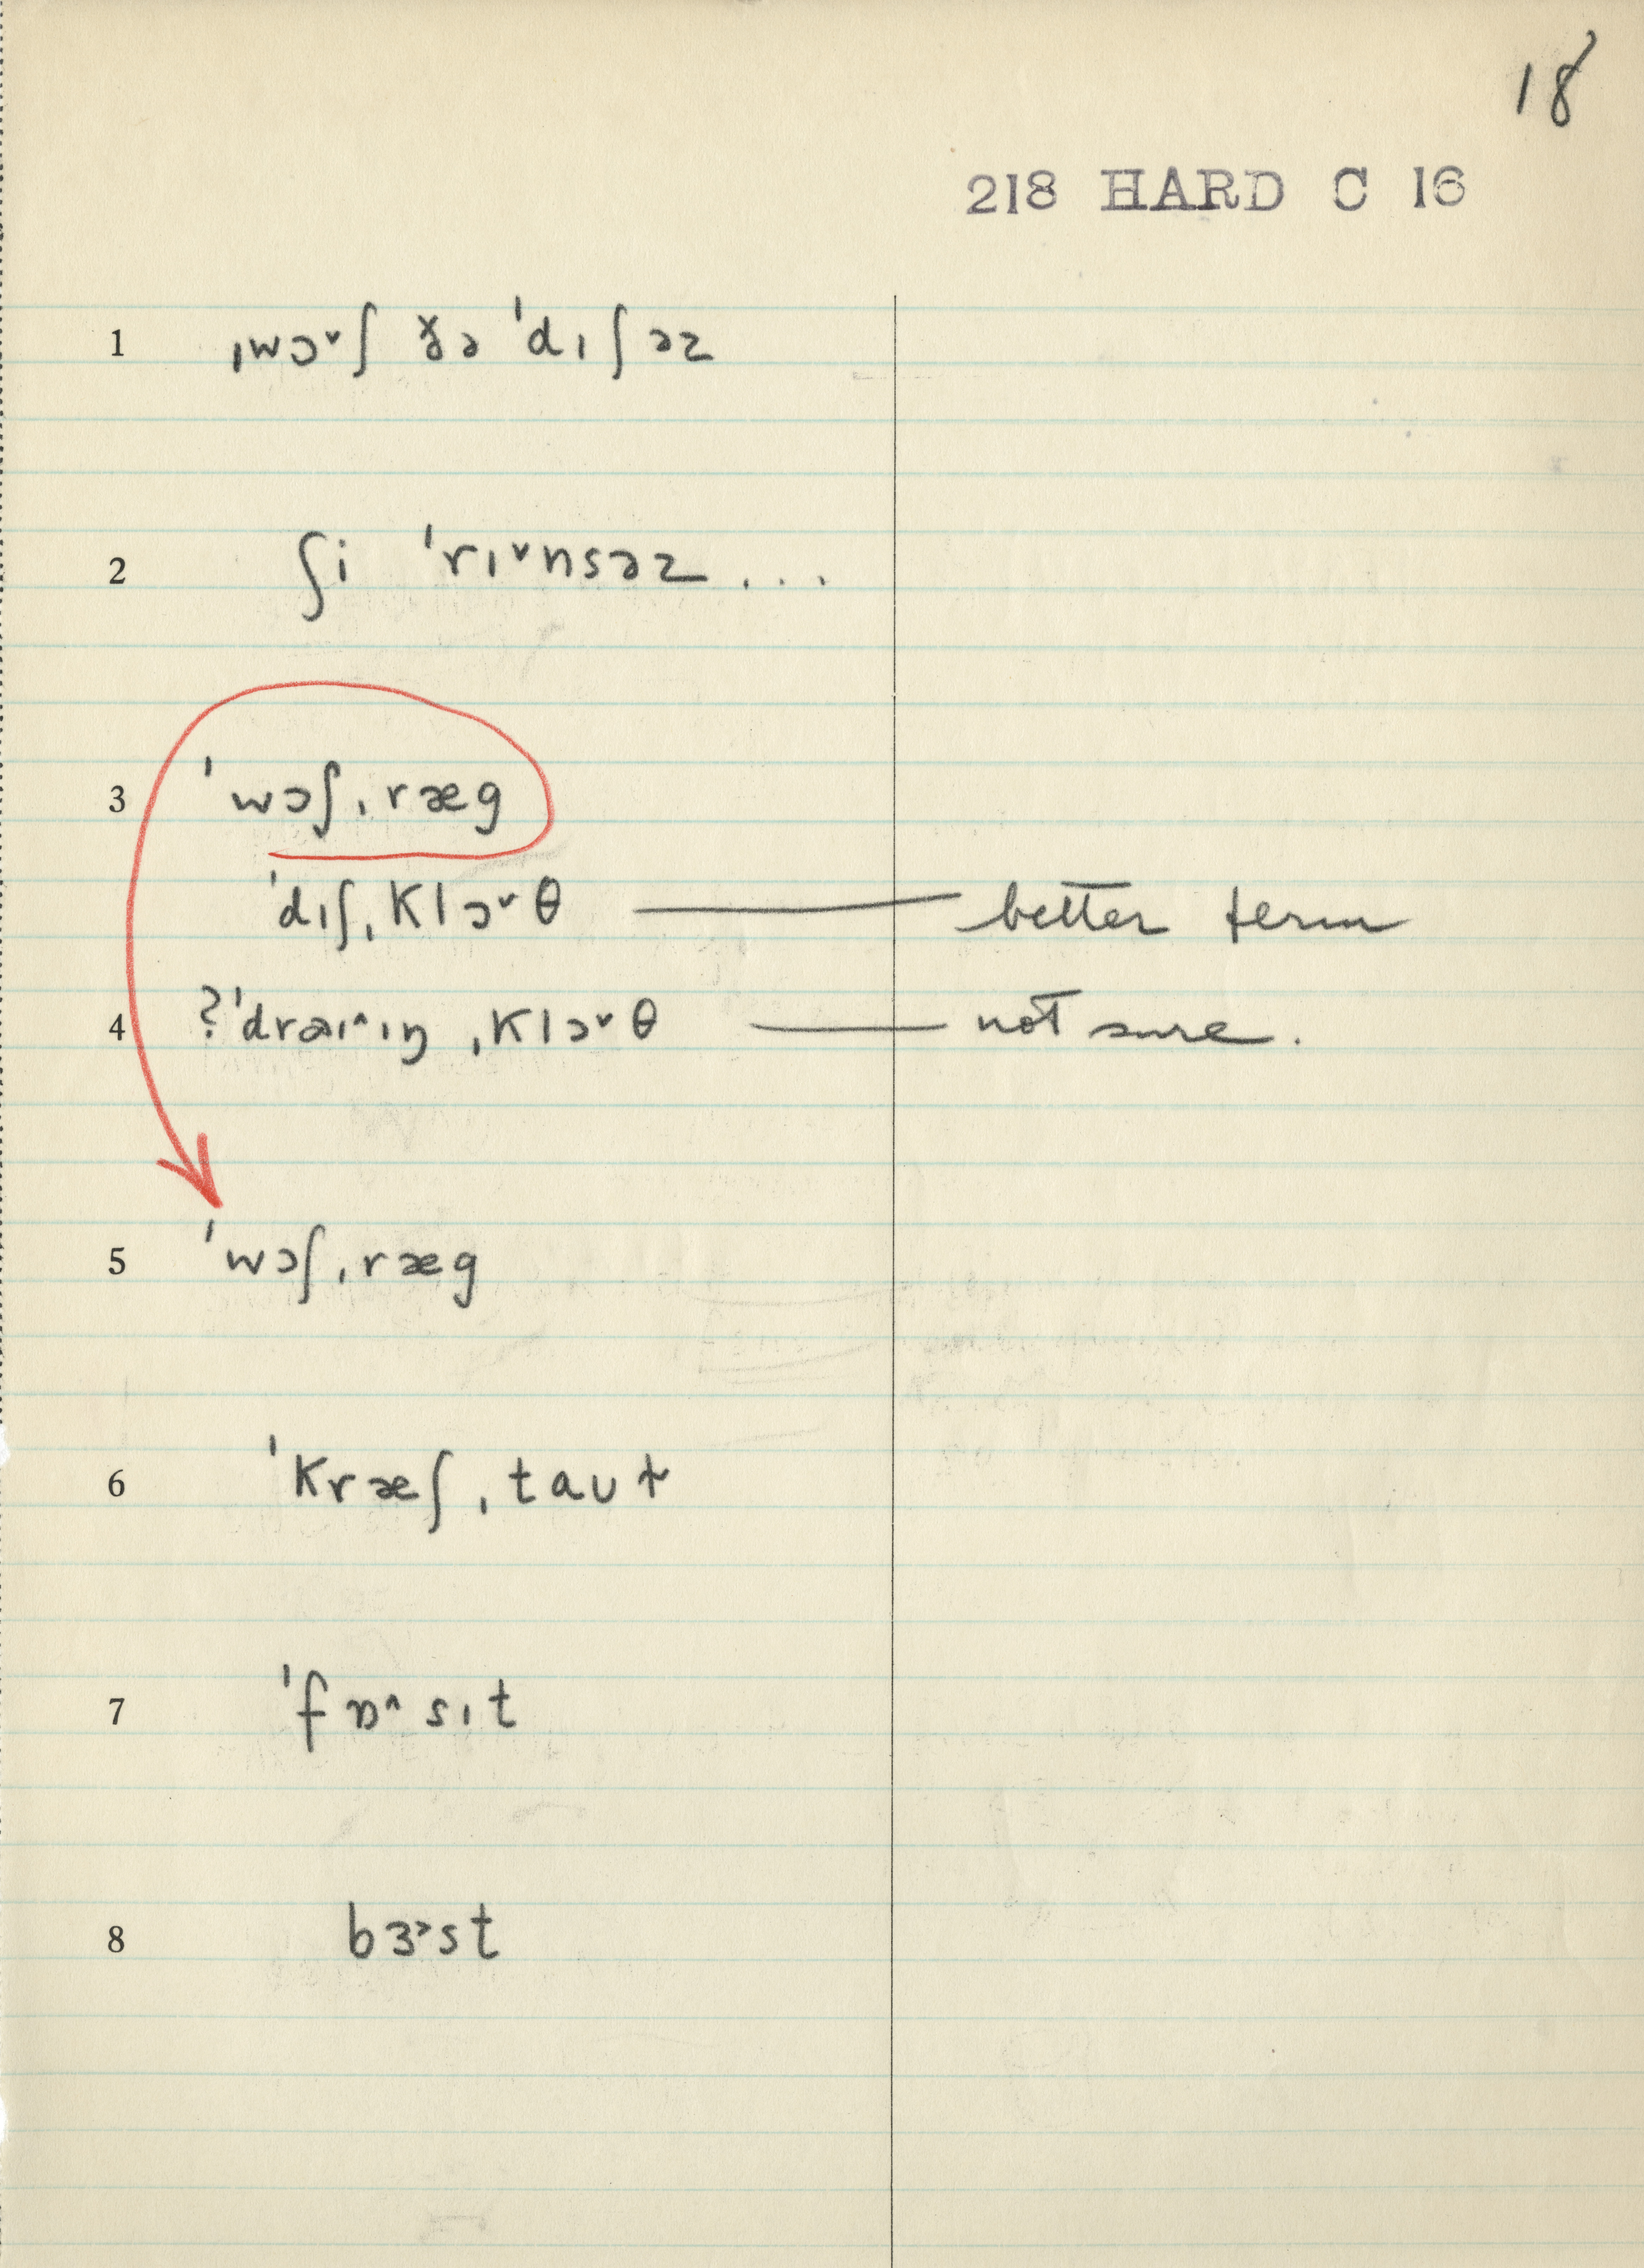 18
218 HARD C 16
1 ˌwɔ˅ʃ ðə ˈdɪʃəz
2 ʃi ˈrɪ˅nsəz...
3 ˈwɔʃˌræg
ˈdɪʃˌklɔ˅θ — better term
4 ?ˈdraɪ˄ɪŋ ˌklɔ˅θ — not sure.
5 ˈwɔʃˌræg
6 ˈkræʃˌtaʊt̬
7 ˈfɒ˄sɪt
8 bɜ˃st